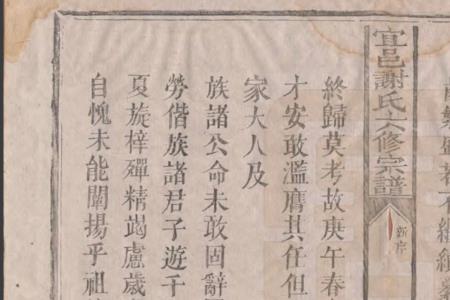 宜邑謝氏六修宗譜
新序
終歸莫考故庚午春
才安敢濫膺其任但
家大人及
族諸公命未敢固辭
勞偕族諸君子遊于
夏旋梓殫精竭慮歲
自愧未能闡揚乎祖